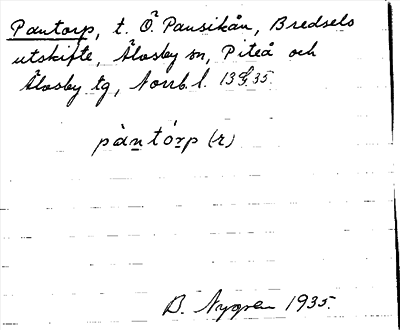 Pantorp, t. Ö. Pansikån, Bredsels
utskifte, Älvsby sn, Piteå och
Älvsby tg, Norrb. l. 13 35
pàntórp (r)
B. Nygren 1935.